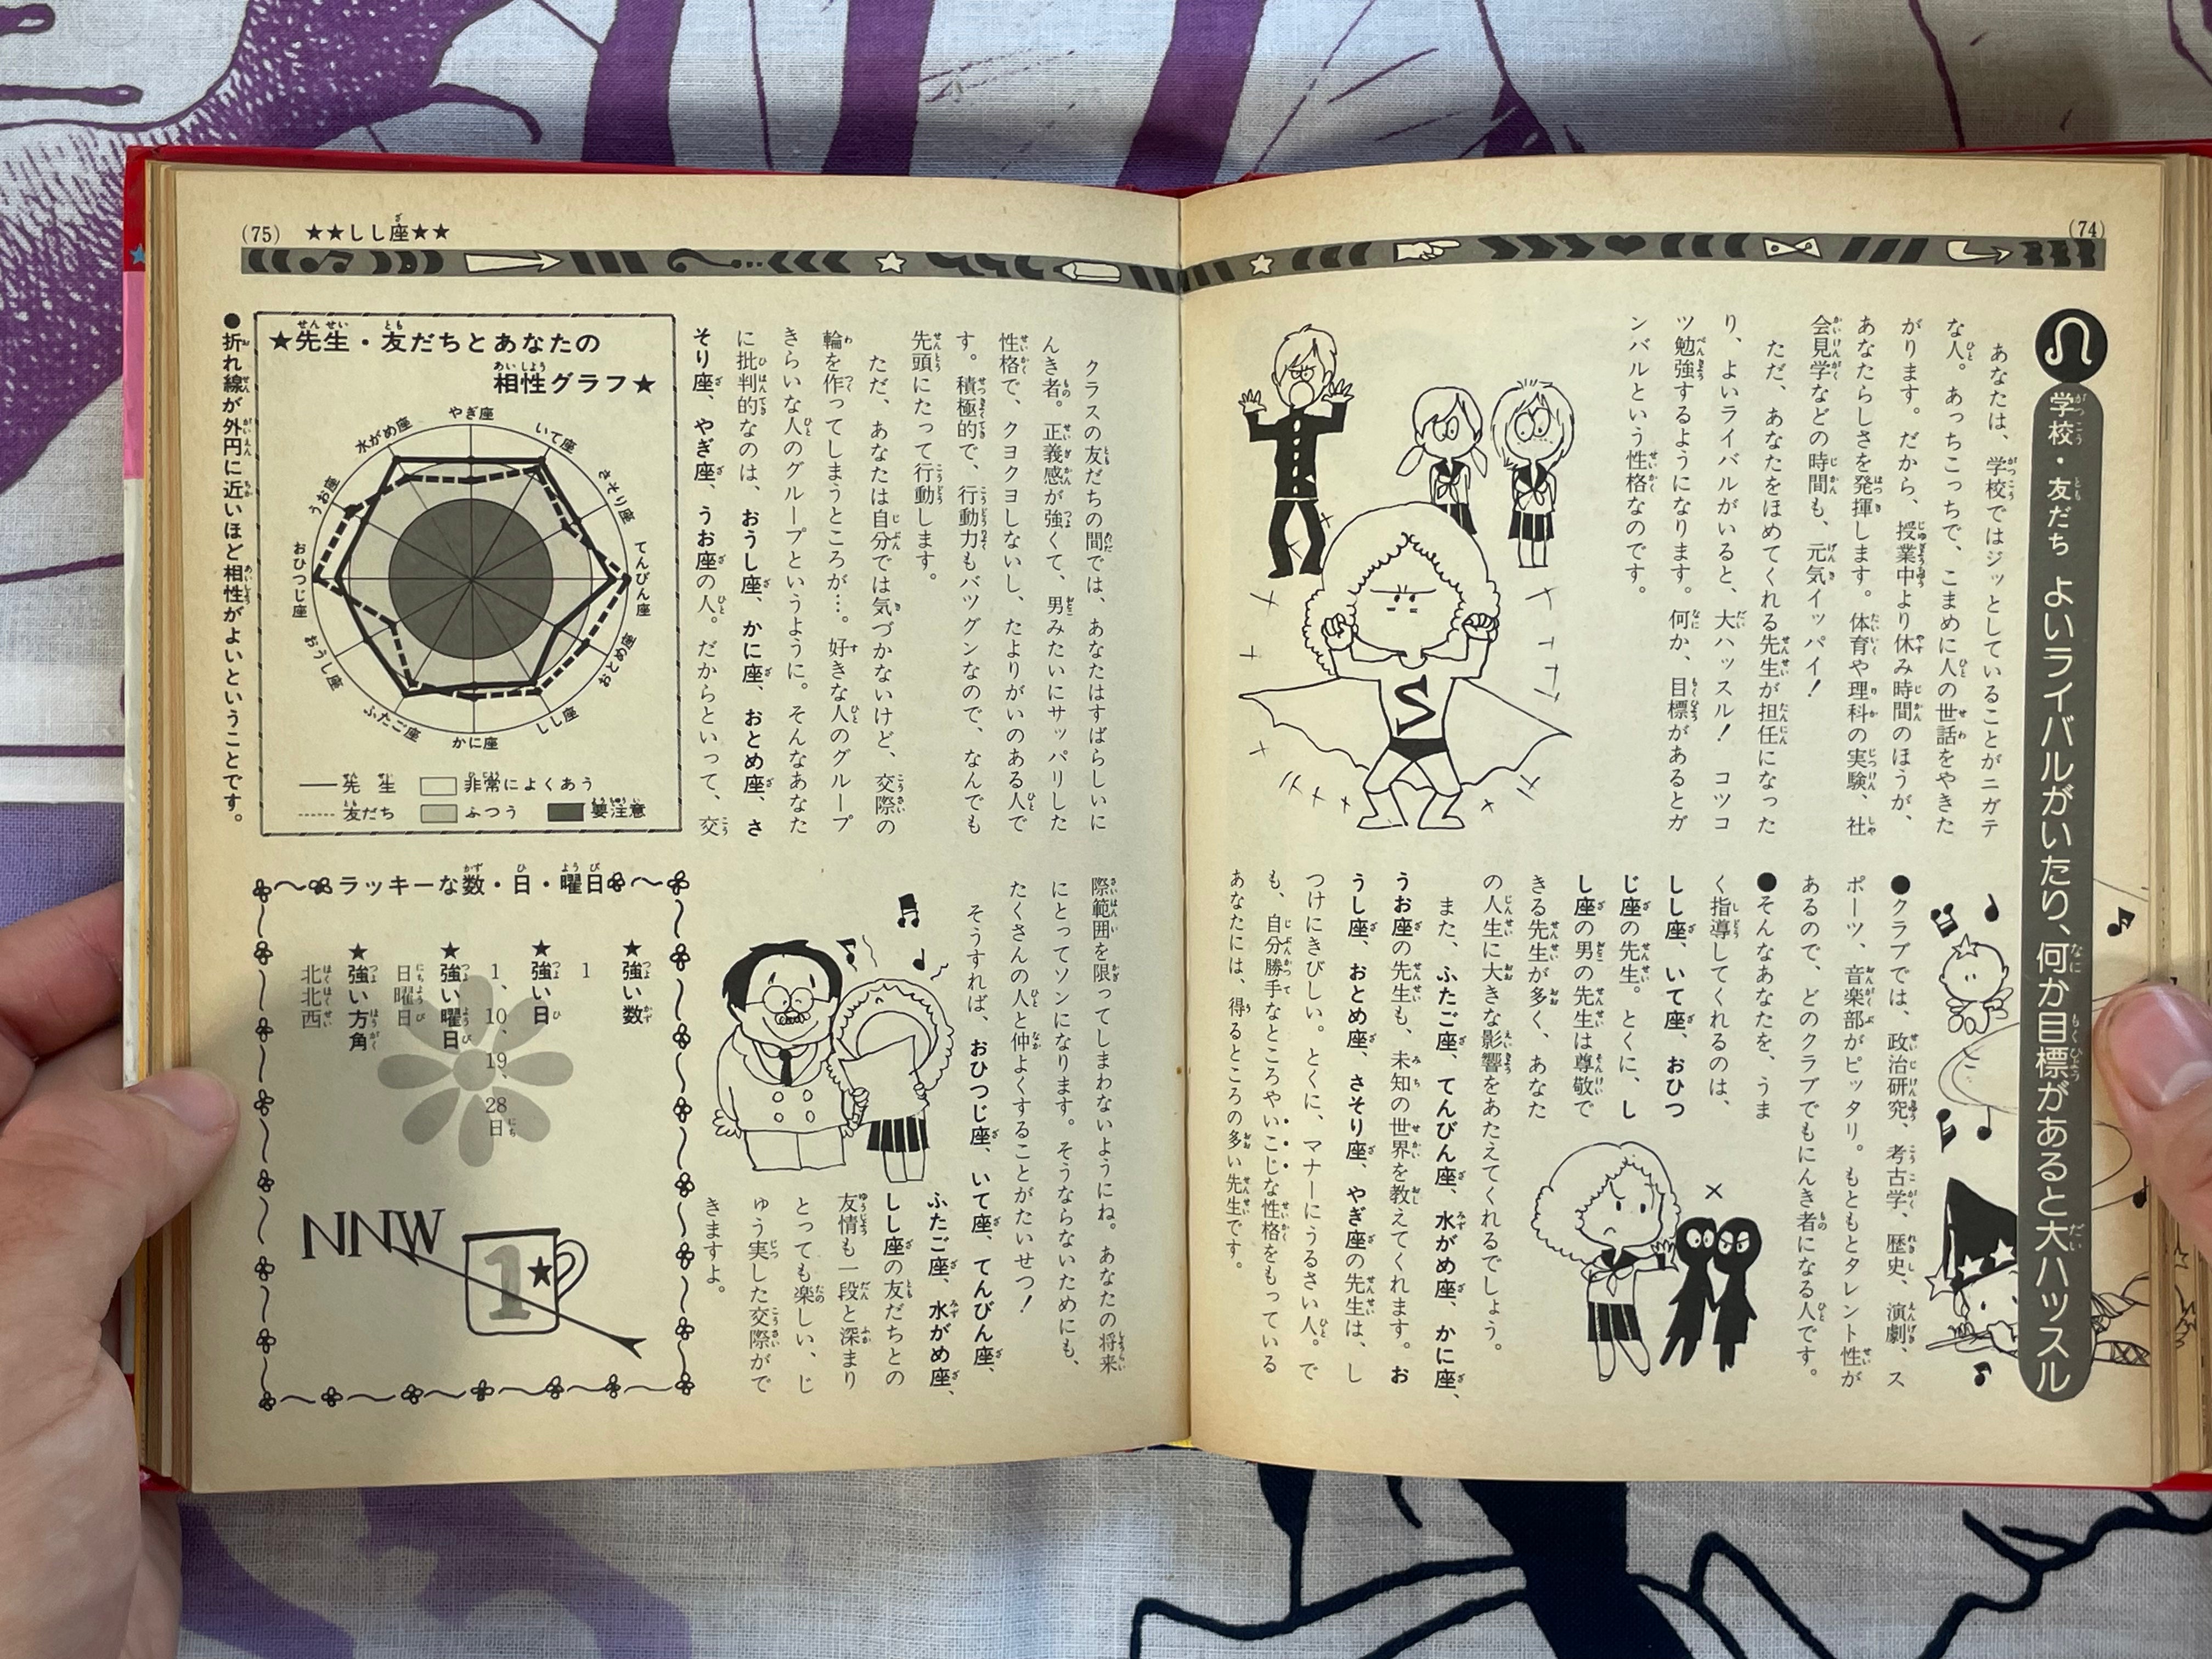 (74)
学校・友だち よいライバルがいたり、何か目標があると大ハッスル
あなたは、学校ではジッとしていることがニガテ
な人。あっちこっちで、こまめに人の世話をやきた
がります。だから、授業中より休み時間のほうが、
あなたらしさを発揮します。体育や理科の実験、社
会見学などの時間も、元気イッパイ！
ただ、あなたをほめてくれる先生が担任になった
り、よいライバルがいると、大ハッスル！ コツコ
ツ勉強するようになります。何か、目標があるとガ
ンバルという性格なのです。
●クラブでは、政治研究、考古学、歴史、演劇、ス
ポーツ、音楽部がピッタリ。もともとタレント性が
あるので、どのクラブでもにんき者になる人です。
●そんなあなたを、うま
く指導してくれるのは、
しし座、いて座、おひつ
じ座の先生。とくに、し
し座の男の先生は尊敬で
きる先生が多く、あなた
の人生に大きな影響をあたえてくれるでしょう。
また、ふたご座、てんびん座、水がめ座、かに座、
うお座の先生も、未知の世界を教えてくれます。お
うし座、おとめ座、さそり座、やぎ座の先生は、し
つけにきびしい。とくに、マナーにうるさい人。で
も、自分勝手なところやいこじな性格をもっている
あなたには、得るところの多い先生です。
S
(75) ★★しし座★★
クラスの友だちの間では、あなたはすばらしいに
んき者。正義感が強くて、男みたいにサッパリした
性格で、クヨクヨしないし、たよりがいのある人で
す。積極的で、行動力もバツグンなので、なんでも
先頭にたって行動します。
ただ、あなたは自分では気づかないけど、交際の
輪を作ってしまうところが…。好きな人のグループ
きらいな人のグループというように。そんなあなた
に批判的なのは、おうし座、かに座、おとめ座、さ
そり座、やぎ座、うお座の人。だからといって、交
際範囲を限ってしまわないようにね。あなたの将来
にとってソンになります。そうならないためにも、
たくさんの人と仲よくすることがたいせつ！
そうすれば、おひつじ座、いて座、てんびん座、
ふたご座、水がめ座、
しし座の友だちとの
友情も一段と深まり
とっても楽しい、じ
ゅう実した交際がで
きますよ。
★先生・友だちとあなたの
相性グラフ★
やぎ座
いて座
さそり座
てんびん座
おとめ座
しし座
かに座
ふたご座
おうし座
おひつじ座
うお座
水がめ座
先生
友だち
非常によくあう
ふつう
要注意
●折れ線が外円に近いほど相性がよいということです。
ラッキーな数・日・曜日
★強い数
1
★強い日
1、10、19、28日
★強い曜日
日曜日
★強い方角
北北西
NNW
1